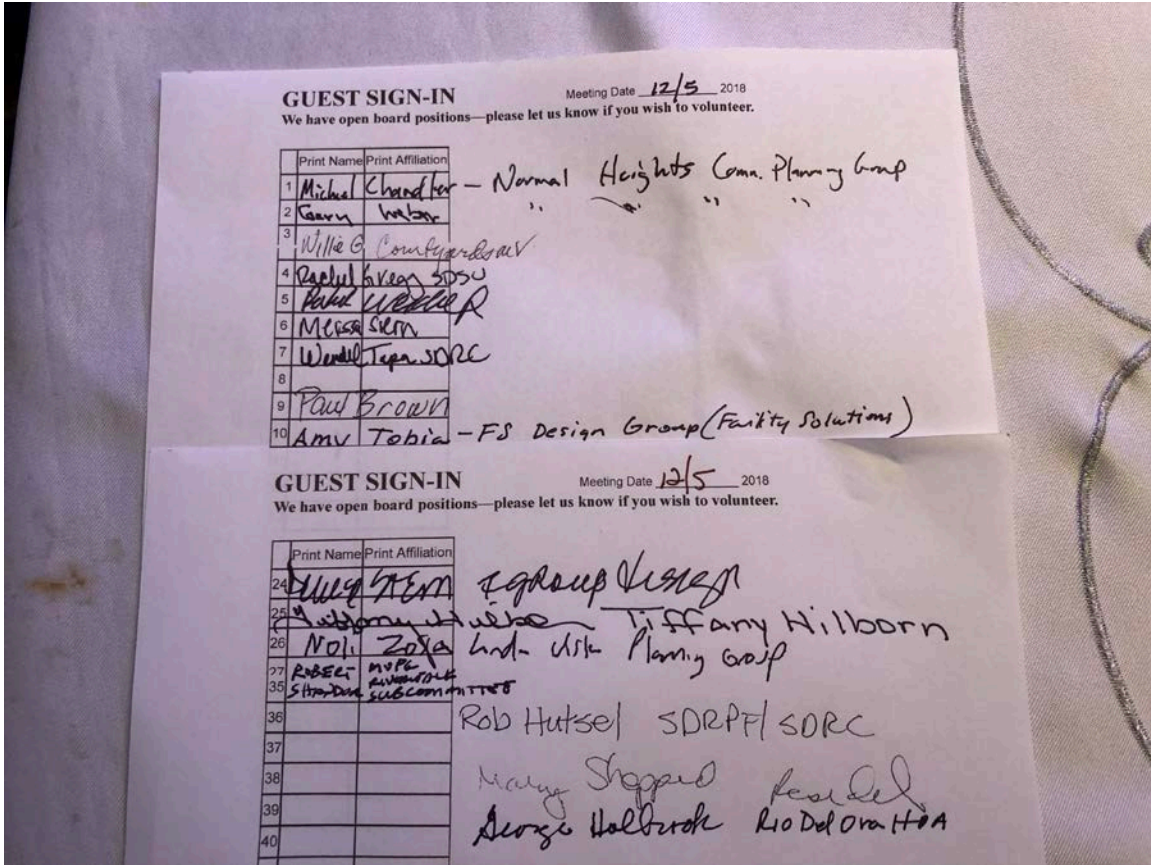 GUEST SIGN-IN Meeting Date 12/5 2018
We have open board positions—please let us know if you wish to volunteer.
Print Name Print Affiliation
1 Michael Chandler - Normal Heights Comm. Planning Group
2 Gary Weber " " " "
3 Willie G Courtyards MV
4 Rachel Gregg SDSU
5
6 Stern
7 Wendel SDRC
8
9 Paul Brown
10 Amy Tobia - FS Design Group (Facility Solutions)
GUEST SIGN-IN Meeting Date 12/5 2018
We have open board positions—please let us know if you wish to volunteer.
Print Name Print Affiliation
24 STERN
25 Tiffany Hilborn
26 Noli Zosa Linda Vista Planning Group
27 ROBERT MVPG
35 SUBCOMMITTEE
36 Rob Hutsel SDRPF/SDRC
37
38 Mary Sheppard
39
George Holbrook Rio Del Oro HOA
40